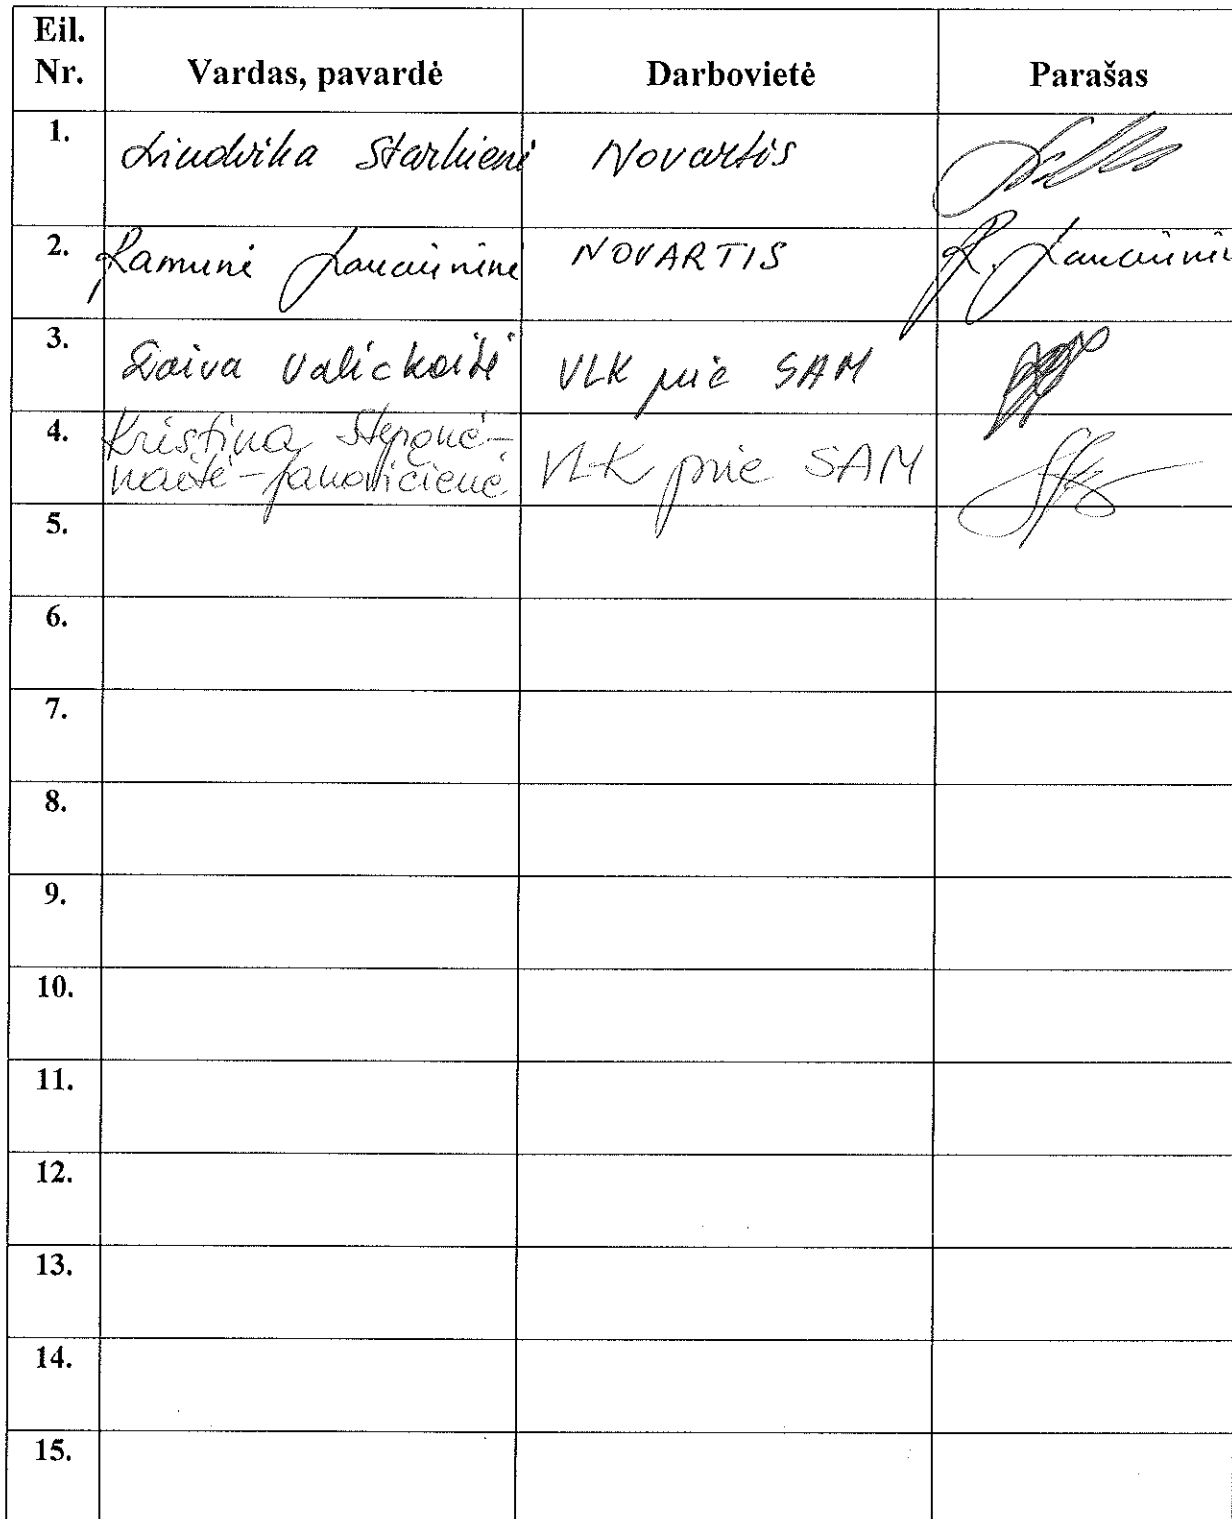 Eil. Nr. Vardas, pavardė Darbovietė Parašas
1. Liudvika Starkienė Novartis
2. Ramunė NOVARTIS R.
3. Daiva Valickaitė VLK prie SAM
4. Kristina Steponė-
naitė-Janavičienė VLK prie SAM
5.
6.
7.
8.
9.
10.
11.
12.
13.
14.
15.